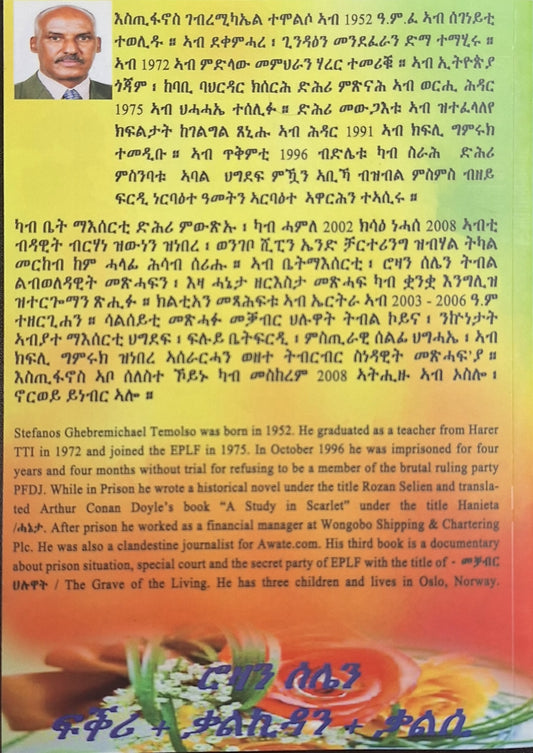 እስጢፋኖስ ገብረሚካኤል ተሞልሶ ኣብ 1952 ዓ.ም.ፈ ኣብ ሰገነይቲ
ተወሊዱ ። ኣብ ደቀምሓረ ፣ ጊንዳዕን መንደፈራን ድማ ተማሂሩ ።
ኣብ 1972 ኣብ ምድላው መምህራን ሃረር ተመሪቑ ። ኣብ ኢትዮጵያ
ጎጃም ፣ ከባቢ ባህርዳር ክሰርሕ ድሕሪ ምጽናሕ ኣብ ወርሒ ሕዳር
1975 ኣብ ህሓሓኤ ተሰሊፉ ። ድሕሪ መውጋእቱ ኣብ ዝተፈላለየ
ክፍልታት ከገልግል ጸኒሑ ኣብ ሕዳር 1991 ኣብ ክፍሊ ግምሩክ
ተመዲቡ ። ኣብ ጥቅምቲ 1996 ብድሌቱ ካብ ስራሕ ድሕሪ
ምስንባቱ ኣባል ህግደፍ ምዃን ኣቢኻ ብዝብል ምስምስ ብዘይ
ፍርዲ ነርባዕተ ዓመትን ኣርባዕተ ኣዋርሕን ተኣሲሩ ።
ካብ ቤት ማእሰርቲ ድሕሪ ምውጽኡ ፣ ካብ ሓምለ 2002 ክሳዕ ነሓሰ 2008 ኣብቲ
ብዳዊት ብርሃነ ዝውነን ዝነበረ ፣ ወንጎቦ ሺፒን ኤንድ ቻርተሪንግ ዝብሃል ትካል
መርከብ ከም ሓላፊ ሕሳብ ሰሪሑ ። ኣብ ቤትማእሰርቲ ፣ ሮዛን ሰሌን ትብል
ልብወለዳዊት መጽሓፍን ፣ እዛ ሓኔታ ዘርእስታ መጽሓፍ ካብ ቋንቋ እንግሊዝ
ዝተርጐማን ጽሒፉ ። ክልቲአን መጻሕፍቱ ኣብ ኤርትራ ኣብ 2003 - 2006 ዓ.ም
ተዘርጊሐን ። ሳልሰይቲ መጽሓፉ መቓብር ህሉዋት ትብል ኮይና ፣ ንኩነታት
ኣብያተ ማእሰርቲ ህግደፍ ፣ ፍሉይ ቤትፍርዲ ፣ ምስጢራዊ ሰልፊ ህግሓኤ ፣ ኣብ
ክፍሊ ግምሩክ ዝነበረ ኣሰራርሓን ወዘተ ትብርብር ስነዳዊት መጽሓፍ'ያ ።
እስጢፋኖስ ኣቦ ሰለስተ ኾይኑ ካብ መስከረም 2008 ኣትሒዙ ኣብ ኦስሎ ፣
ኖርወይ ይነብር ኣሎ ።
Stefanos Ghebremichael Temolso was born in 1952. He graduated as a teacher from Harer
TTI in 1972 and joined the EPLF in 1975. In October 1996 he was imprisoned for four
years and four months without trial for refusing to be a member of the brutal ruling party
PFDJ. While in Prison he wrote a historical novel under the title Rozan Selien and transla-
ted Arthur Conan Doyle's book "A Study in Scarlet" under the title Hanieta
/ሓኔታ. After prison he worked as a financial manager at Wongobo Shipping & Chartering
Plc. He was also a clandestine journalist for Awate.com. His third book is a documentary
about prison situation, special court and the secret party of EPLF with the title of - መቓብር
ህሉዋት / The Grave of the Living. He has three children and lives in Oslo, Norway.
ሮዛን ሰሌን
ፍቕሪ + ቃልኪዳን + ቃልሲ